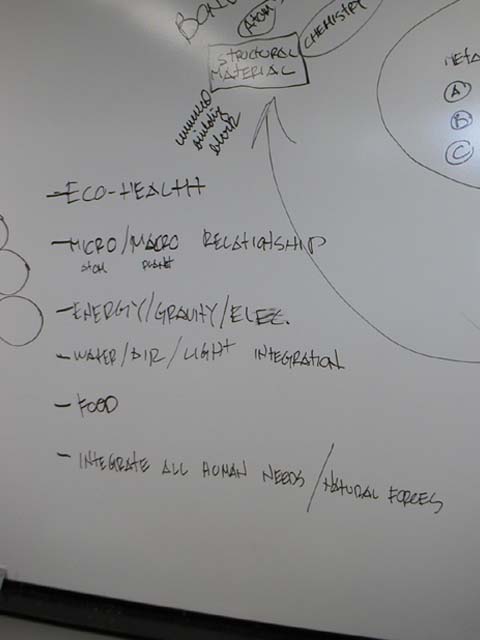 BOND
ATOM
CHEMISTRY
STRUCTURAL
MATERIAL
building
block
META
A
B
C
- ECO-HEALTH
- MICRO/MACRO RELATIONSHIP
ATOM PLANET
- ENERGY/GRAVITY/ELEC.
- WATER/AIR/LIGHT INTEGRATION
- FOOD
- INTEGRATE ALL HUMAN NEEDS / NATURAL FORCES